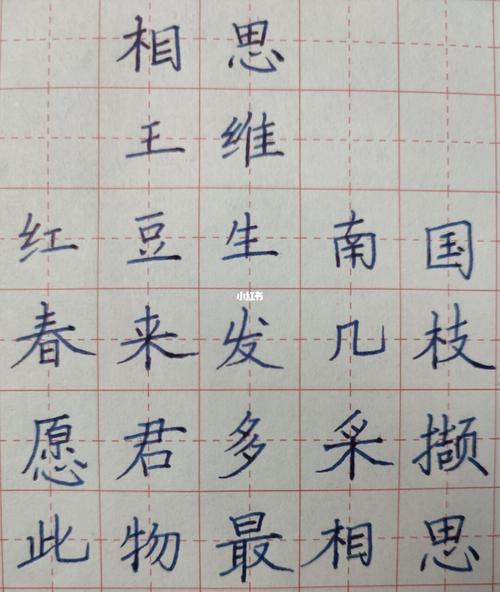 相思
王维
红豆生南国
小红书
春来发几枝
愿君多采撷
此物最相思